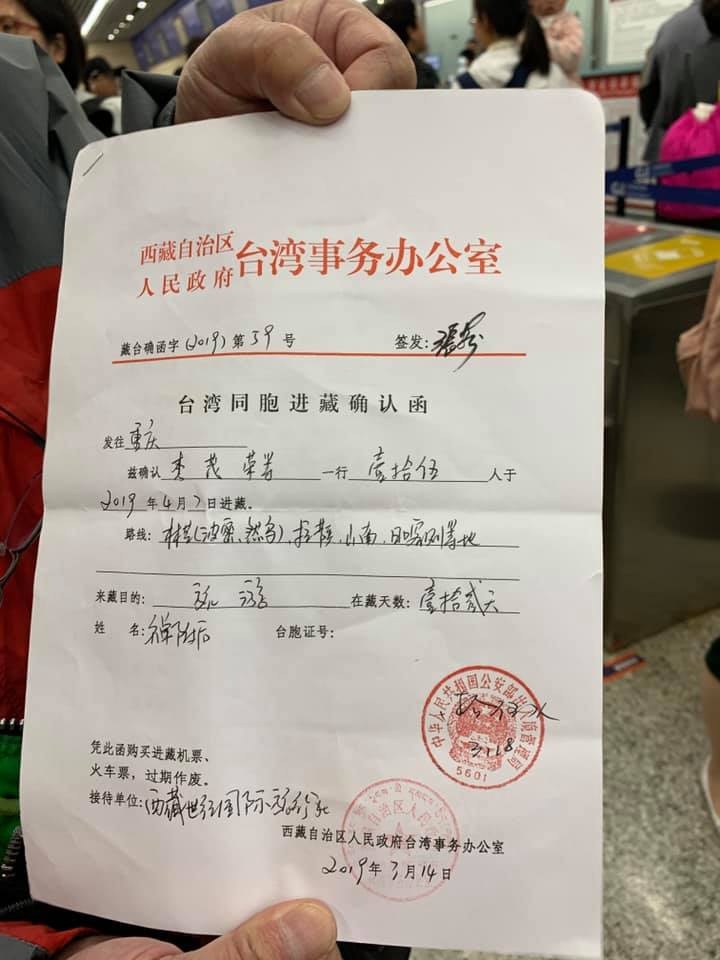 西藏自治区
人民政府
台湾事务办公室
藏台确函字(2019)第 39 号 签发:
台湾同胞进藏确认函
发往 重庆
兹确认 李茂荣等 一行 壹拾伍 人于
2019 年 4 月 7 日进藏。
路线: 林芝(波密、然乌)、拉萨、山南、日喀则等地
来藏目的: 旅游 在藏天数: 壹拾贰天
姓 名: 名单附后 台胞证号:
中华人民共和国公安部出入境管理局
3.118
5601
凭此函购买进藏机票、
火车票,过期作废。
接待单位: 西藏世纪国际旅行社
西藏自治区人民政府台湾事务办公室
2019 年 3 月 14 日